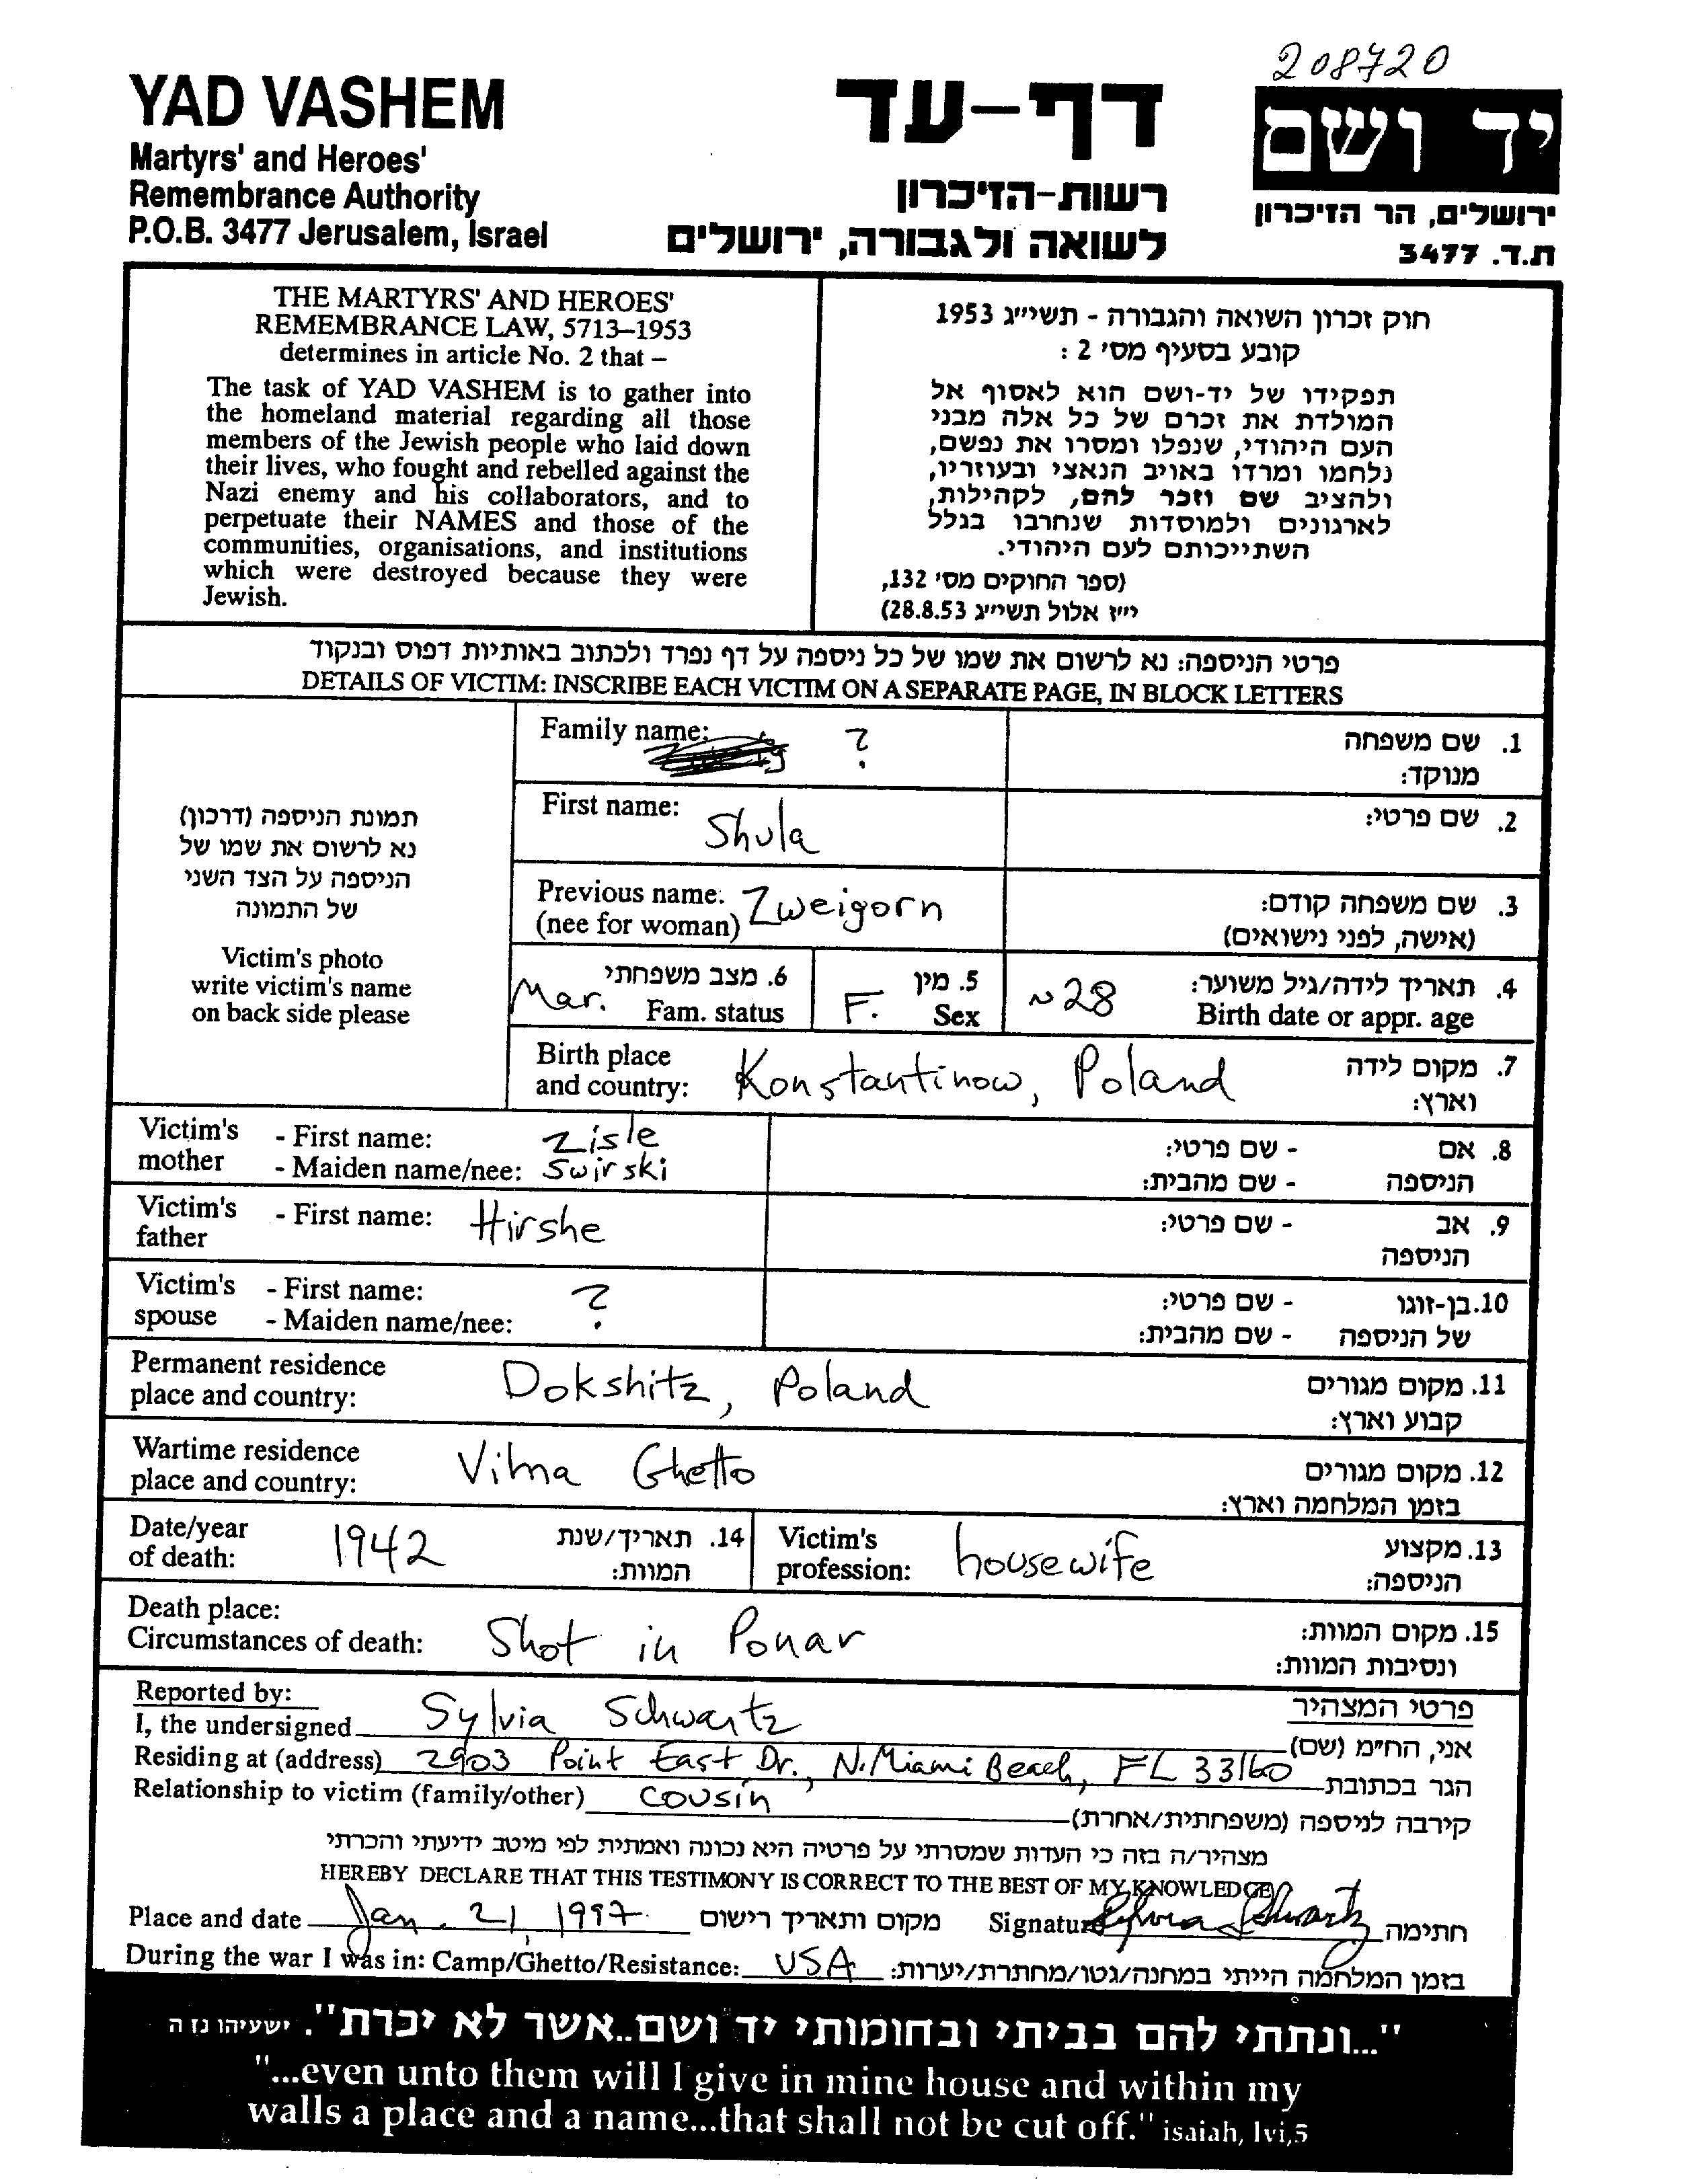 208720
YAD VASHEM
Martyrs' and Heroes'
Remembrance Authority
P.O.B. 3477 Jerusalem, Israel
דף-עד
רשות-הזיכרון
לשואה ולגבורה, ירושלים
יד ושם
ירושלים, הר הזיכרון
ת.ד. 3477
THE MARTYRS' AND HEROES'
REMEMBRANCE LAW, 5713–1953
determines in article No. 2 that –
The task of YAD VASHEM is to gather into
the homeland material regarding all those
members of the Jewish people who laid down
their lives, who fought and rebelled against the
Nazi enemy and his collaborators, and to
perpetuate their NAMES and those of the
communities, organisations, and institutions
which were destroyed because they were
Jewish.
חוק זכרון השואה והגבורה - תשי״ג 1953
קובע בסעיף מס' 2 :
תפקידו של יד-ושם הוא לאסוף אל
המולדת את זכרם של כל אלה מבני
העם היהודי, שנפלו ומסרו את נפשם,
נלחמו ומרדו באויב הנאצי ובעוזריו,
ולהציב שם וזכר להם, לקהילות,
לארגונים ולמוסדות שנחרבו בגלל
השתייכותם לעם היהודי.
(ספר החוקים מס' 132,
י״ז אלול תשי״ג 28.8.53)
פרטי הניספה: נא לרשום את שמו של כל ניספה על דף נפרד ולכתוב באותיות דפוס ובנקוד
DETAILS OF VICTIM: INSCRIBE EACH VICTIM ON A SEPARATE PAGE, IN BLOCK LETTERS
תמונת הניספה (דרכון)
נא לרשום את שמו של
הניספה על הצד השני
של התמונה
Victim's photo
write victim's name
on back side please
Family name: ?
1. שם משפחה
מנוקד:
First name: Shula
2. שם פרטי:
Previous name: Zweigorn
(nee for woman)
3. שם משפחה קודם:
(אישה, לפני נישואים)
Mar. 6. מצב משפחתי
Fam. status
F. 5. מין
Sex
~28 4. תאריך לידה/גיל משוער:
Birth date or appr. age
Birth place
and country: Konstantinow, Poland
7. מקום לידה
וארץ:
Victim's mother - First name: Zisle
- Maiden name/nee: Swirski
8. אם הניספה - שם פרטי:
- שם מהבית:
Victim's father - First name: Hirshe
9. אב הניספה - שם פרטי:
Victim's spouse - First name: ?
- Maiden name/nee:
10. בן-זוגו של הניספה - שם פרטי:
- שם מהבית:
Permanent residence
place and country: Dokshitz, Poland
11. מקום מגורים
קבוע וארץ:
Wartime residence
place and country: Vilna Ghetto
12. מקום מגורים
בזמן המלחמה וארץ:
Date/year
of death: 1942
14. תאריך/שנת
המוות:
Victim's
profession: housewife
13. מקצוע
הניספה:
Death place:
Circumstances of death: Shot in Ponar
15. מקום המוות:
ונסיבות המוות:
Reported by:
פרטי המצהיר
I, the undersigned Sylvia Schwartz אני, הח״מ (שם)
Residing at (address) 2903 Point East Dr., N. Miami Beach, FL 33160 הגר בכתובת
Relationship to victim (family/other) cousin קירבה לניספה (משפחתית/אחרת)
מצהיר/ה בזה כי העדות שמסרתי על פרטיה היא נכונה ואמתית לפי מיטב ידיעתי והכרתי
HEREBY DECLARE THAT THIS TESTIMONY IS CORRECT TO THE BEST OF MY KNOWLEDGE
Place and date Jan. 21, 1997 מקום ותאריך רישום Signature Sylvia Schwartz חתימה
During the war I was in: Camp/Ghetto/Resistance: USA בזמן המלחמה הייתי במחנה/גטו/מחתרת/יערות:
"...ונתתי להם בביתי ובחומותי יד ושם..אשר לא יכרת". ישעיהו נז ה
"...even unto them will I give in mine house and within my
walls a place and a name...that shall not be cut off." isaiah, lvi,5